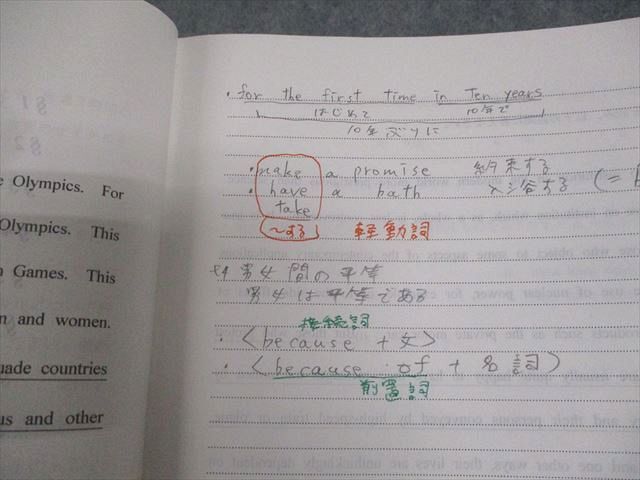 e Olympics. For
Olympics. This
n Games. This
n and women.
uade countries
us and other
・for the first time in Ten years
はじめて 10年で
10年ぶりに
・make a promise 約束する
・have a bath 入浴する (=
take
〜する 軽動詞
男女間の平等
男女は平等である
接続詞
・〈because + 文〉
・〈because of + 名詞〉
前置詞